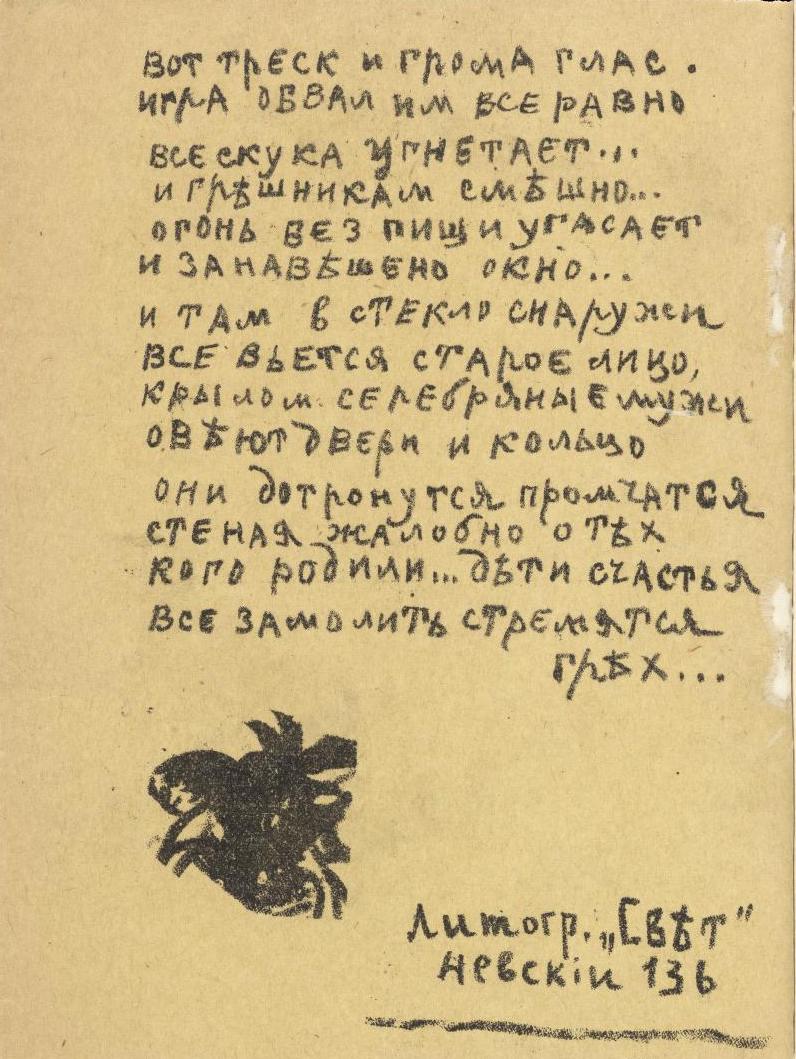 вот треск и грома глас.
игра обвал им все равно
все скука угнетает...
и грѣшникам смѣшно...
огонь без пищи угасает
и занавѣшено окно...
и там в стекло снаружи
все вьется старое лицо,
крылом серебряные мужи
овѣют двери и кольцо
они дотронутся промчатся
стеная жалобно о тѣх
кого родили... дѣти счастья
все замолить стремятся
грѣх...
Литогр. „Свѣт"
Невскій 136